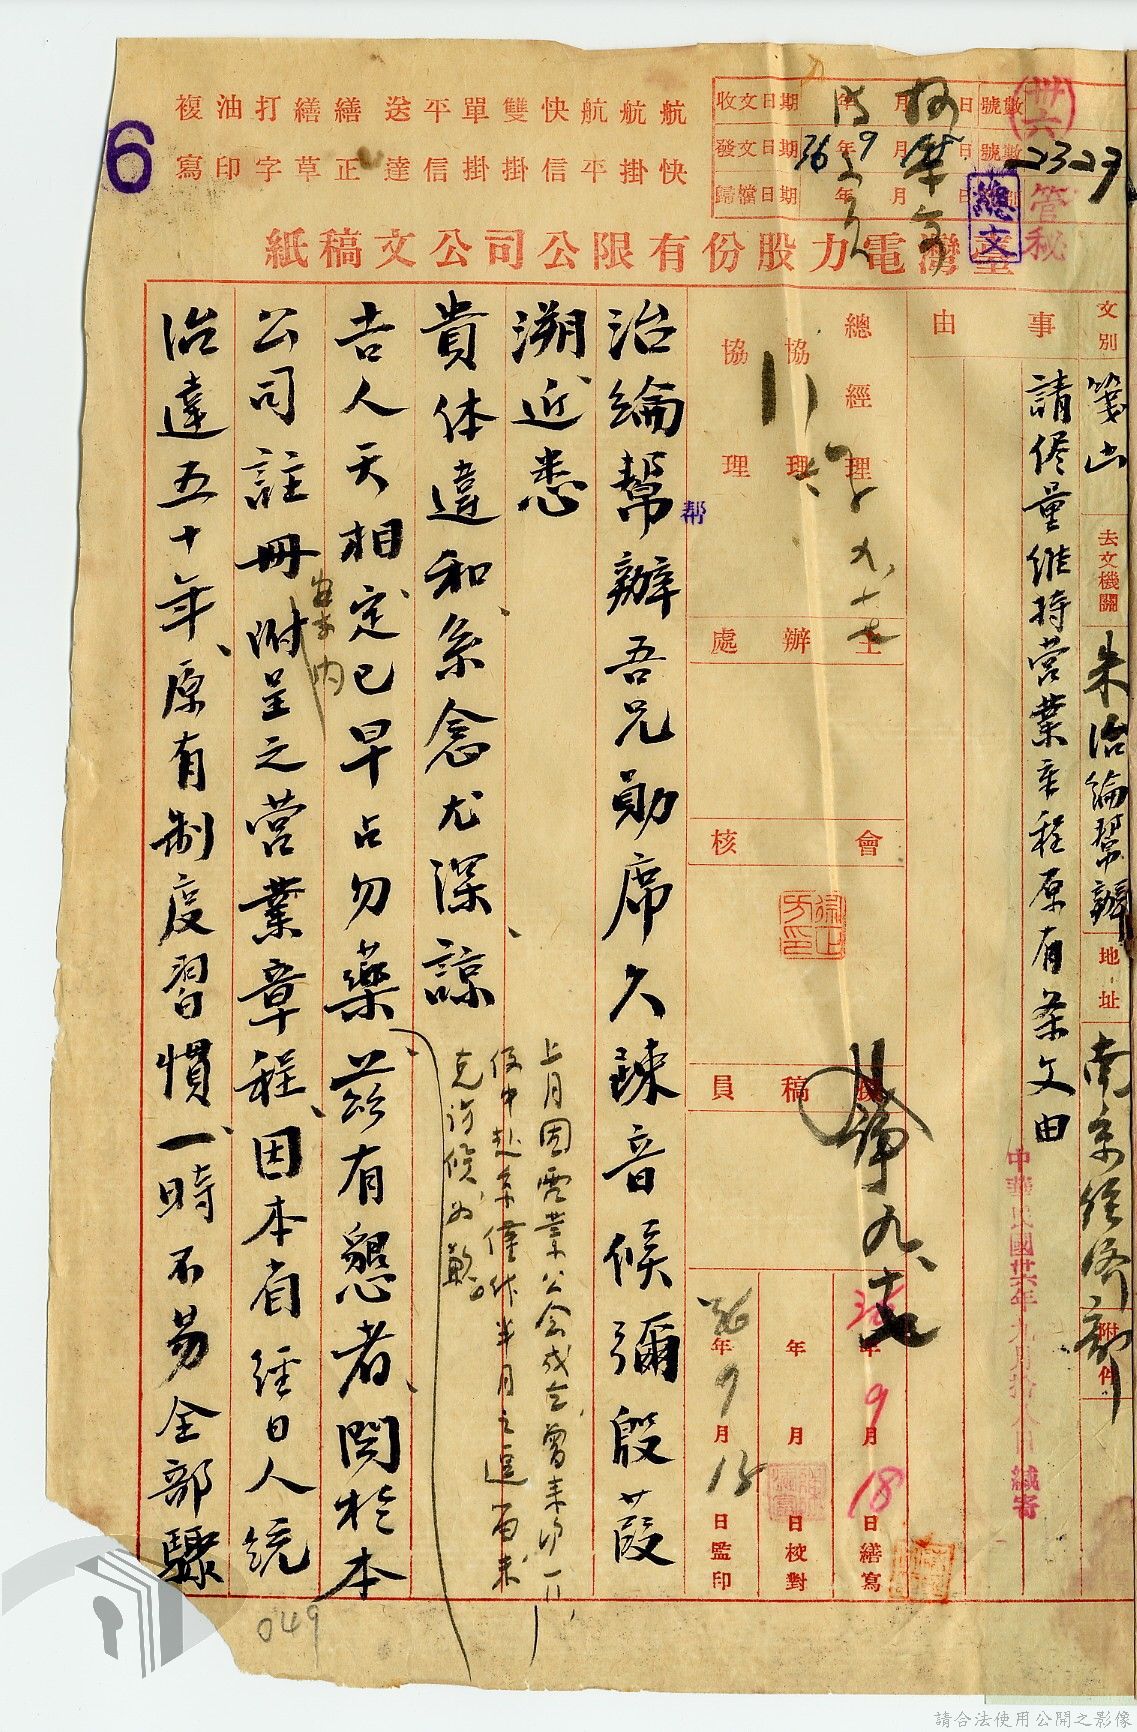 6
航航航快雙單平送繕繕打油複
快掛平信掛掛信達正草字印寫
收文日期 年 月 日 號數
發文日期 36年9月 日 號數 2327
歸檔日期 年 月 日
卅六
管秘
總文
臺灣電力股份有限公司公文稿紙
文別 箋山
去文機關 朱治綸幫辦
地址 南京經濟部
附件
事由
請儘量維持營業章程原有条文由
中華民國卅六年九月拾八日 緘寄
總經理
協理
協理
主辦處
會核
擬稿員
九、十七
九、十七
36年9月18日繕寫
年 月 日校對
36年9月18日監印
治綸幫辦吾兄勛席久疎音候彌殷葭
帮
溯近悉
貴体違和系念尤深、諒
上月因電業公会成立、曾来
任中赴京僅作半月之逗留未
克訪候為歉。
吉人天相定已早占勿藥、茲有懇者、関於本
公司註冊附呈之営業章程、因本省經日人統
案内
治達五十年、原有制度習慣、一時不易全部驟
049
請合法使用公開之影像